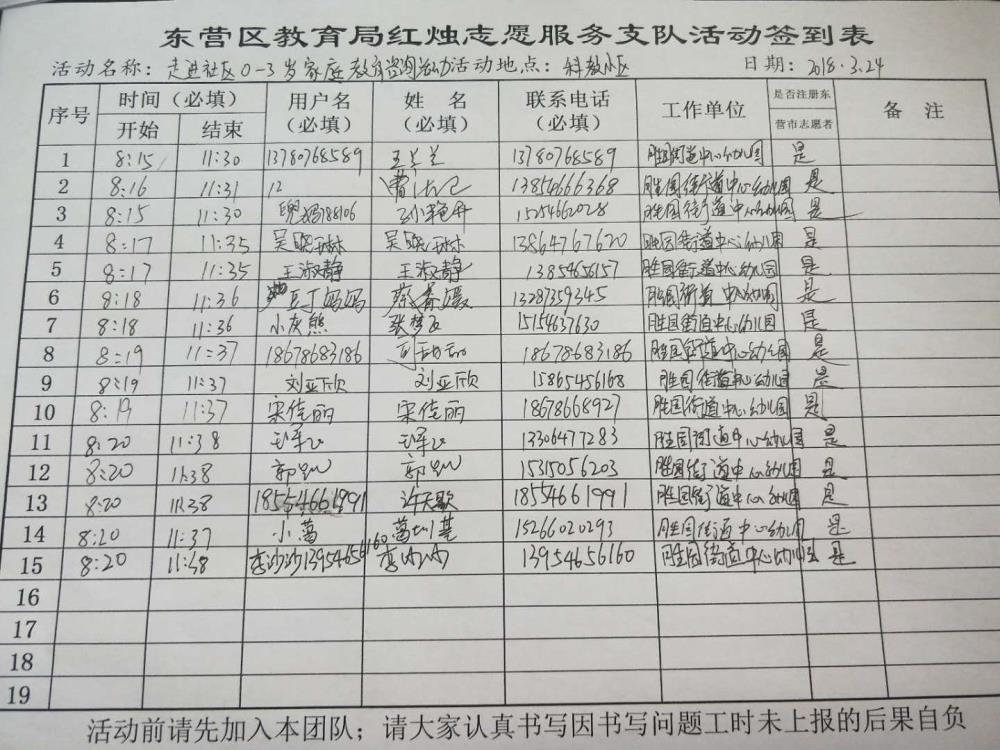 东营区教育局红烛志愿服务支队活动签到表
活动名称：走进社区0-3岁家庭教育咨询活动 活动地点：科教小区 日期：2018.3.24
序号 时间（必填） 用户名（必填） 姓名（必填） 联系电话（必填） 工作单位 是否注册东营市志愿者 备注
开始 结束
1 8:15 11:30 13780768589 王兰兰 13780768589 胜园街道中心幼儿园 是
2 8:16 11:31 12 13854666368 胜园街道中心幼儿园 是
3 8:15 11:30 188106 孙艳丹 15254662028 胜园街道中心幼儿园 是
4 8:17 11:35 吴晓琳 吴晓琳 13864767620 胜园街道中心幼儿园 是
5 8:17 11:35 王淑静 王淑静 13854656157 胜园街道中心幼儿园 是
6 8:18 11:36 豆丁妈妈 蔡春媛 13287359345 胜园街道中心幼儿园 是
7 8:18 11:36 小灰熊 15154637630 胜园街道中心幼儿园 是
8 8:19 11:37 18678683186 18678683186 胜园街道中心幼儿园 是
9 8:19 11:37 刘亚欣 刘亚欣 15865456168 胜园街道中心幼儿园 是
10 8:19 11:37 宋佳丽 宋佳丽 18678668927 胜园街道中心幼儿园 是
11 8:20 11:38 13306477283 胜园街道中心幼儿园 是
12 8:20 11:38 15315056203 胜园街道中心幼儿园 是
13 8:20 11:38 18554661991 许天歌 18554661991 胜园街道中心幼儿园 是
14 8:20 11:37 小葛 15266020293 胜园街道中心幼儿园 是
15 8:20 11:38 李沙沙13954656160 李沙沙 13954656160 胜园街道中心幼儿园 是
16
17
18
19
活动前请先加入本团队；请大家认真书写因书写问题工时未上报的后果自负